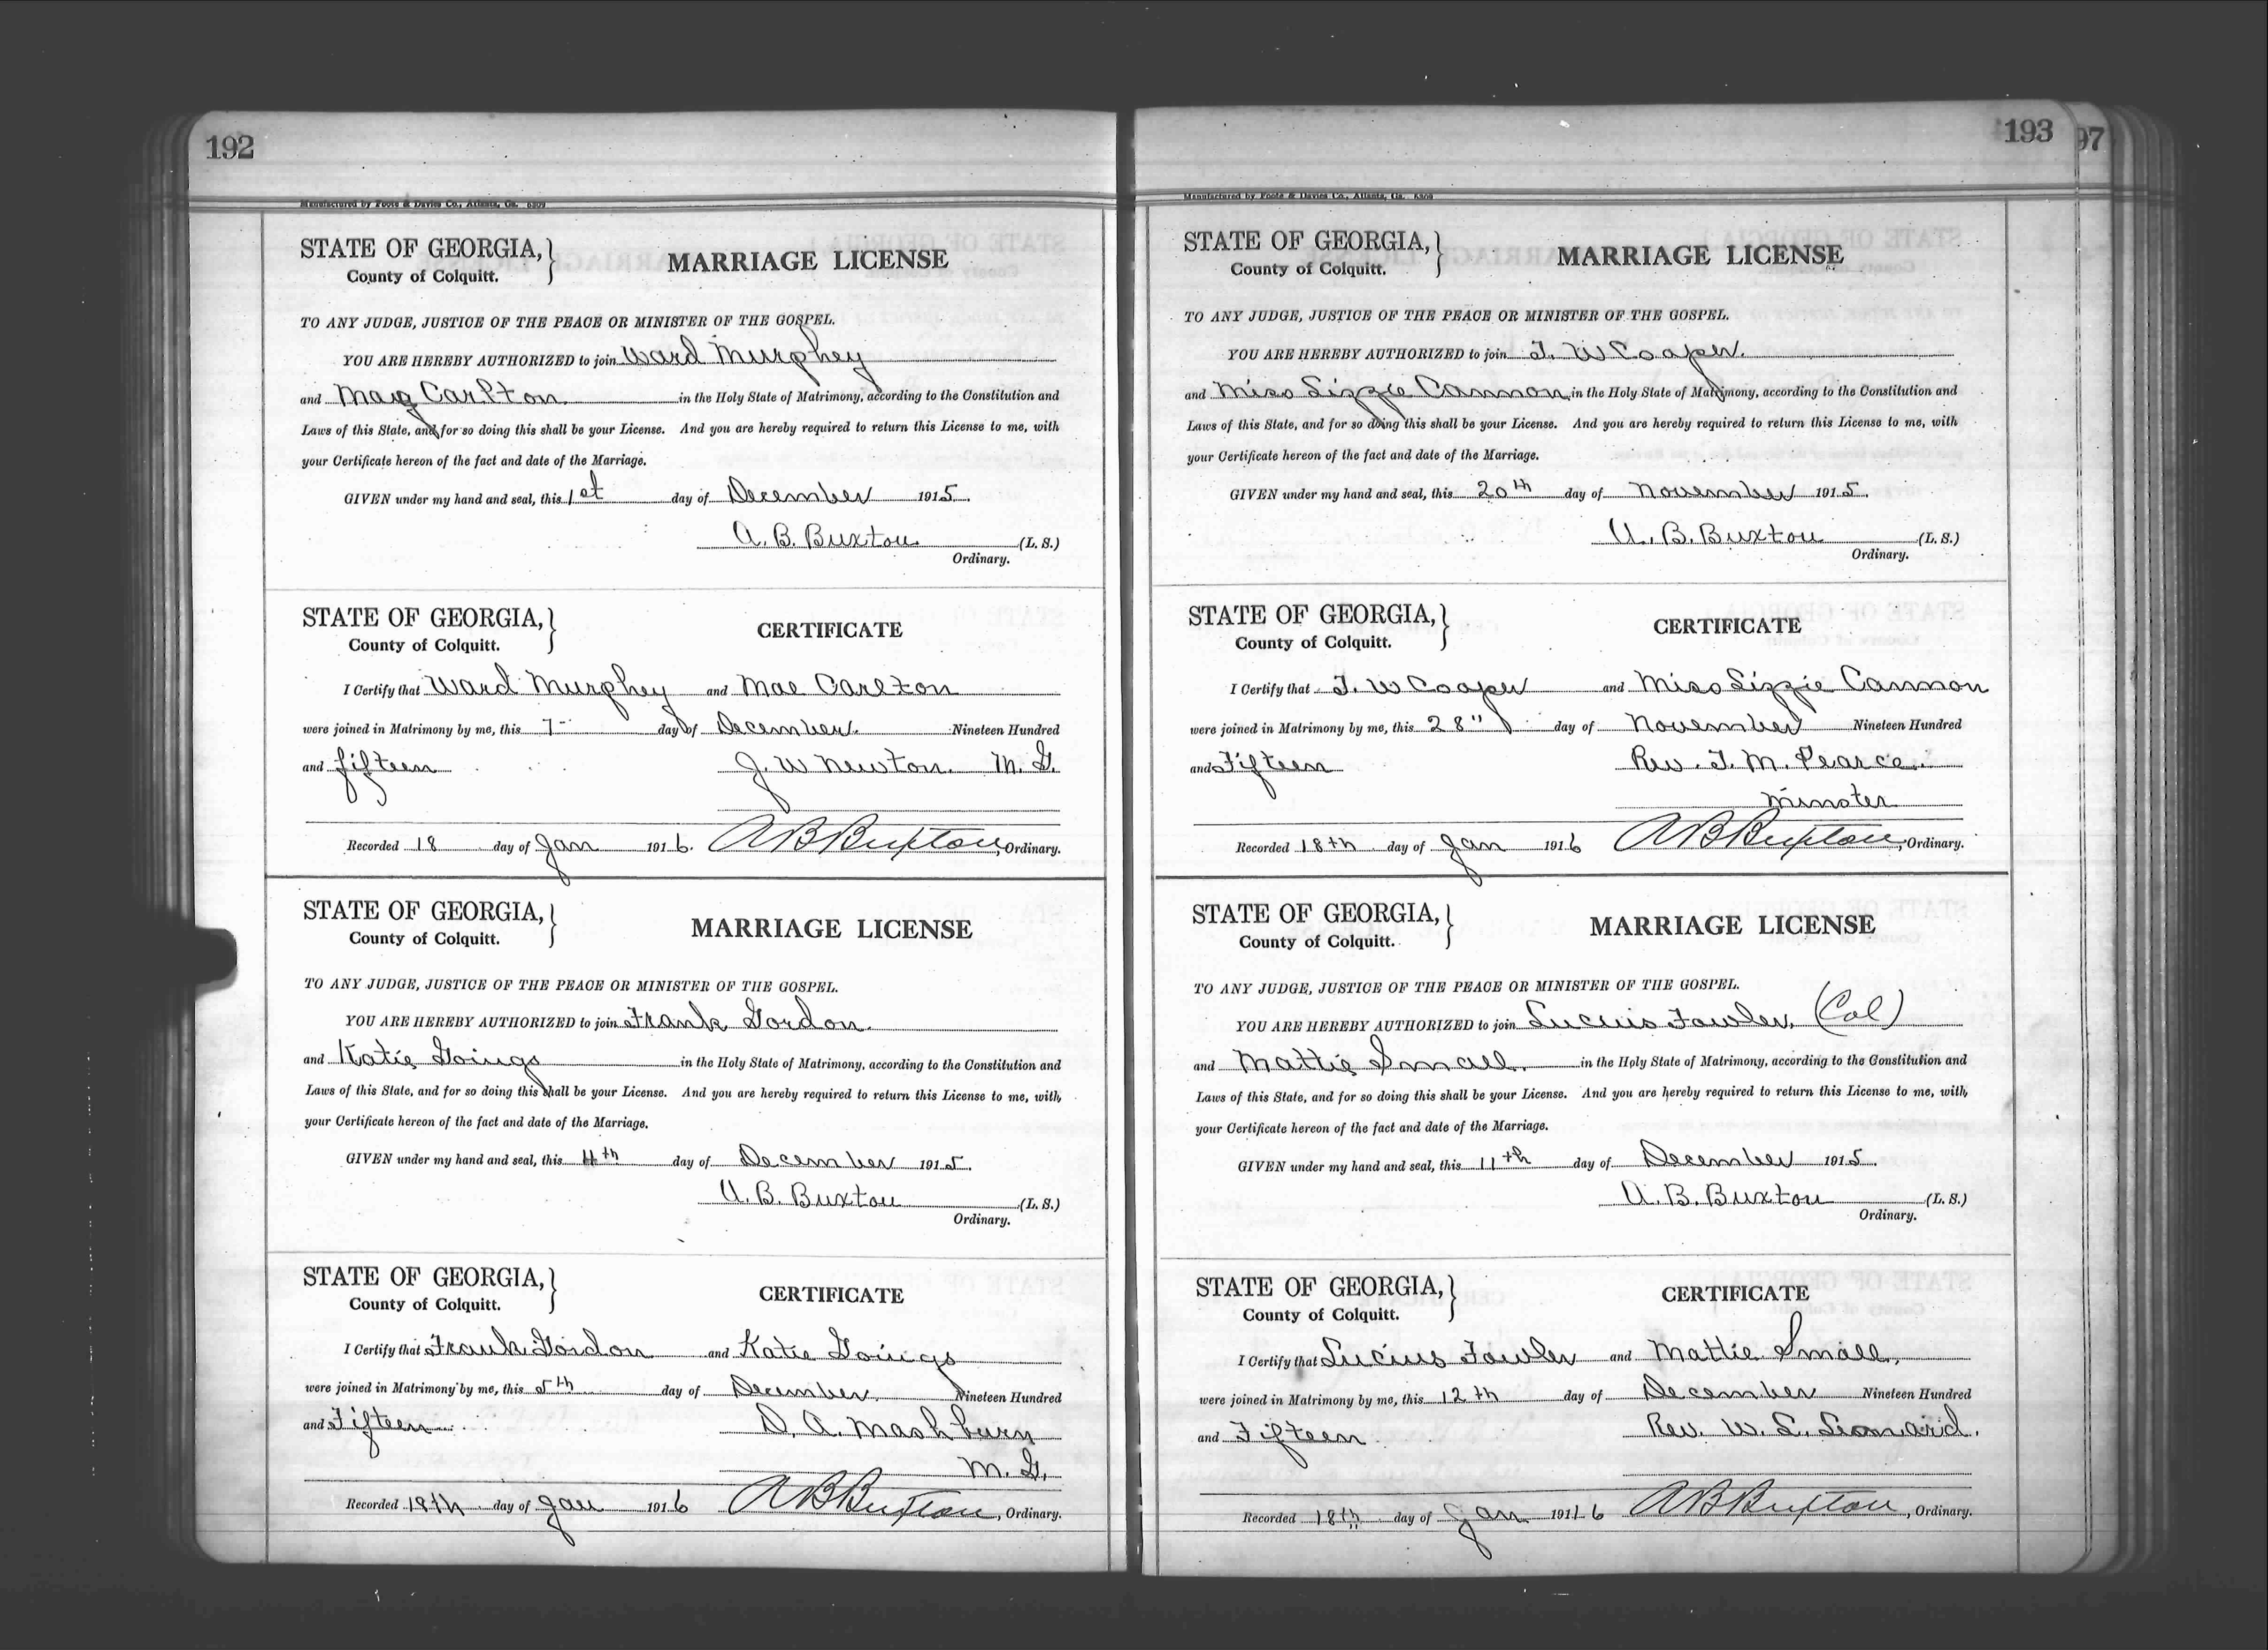 192
Manufactured by Foote & Davies Co., Atlanta, Ga. 6309
STATE OF GEORGIA,
County of Colquitt.
MARRIAGE LICENSE
TO ANY JUDGE, JUSTICE OF THE PEACE OR MINISTER OF THE GOSPEL.
YOU ARE HEREBY AUTHORIZED to join Ward Murphey
and May Carlton in the Holy State of Matrimony, according to the Constitution and
Laws of this State, and for so doing this shall be your License. And you are hereby required to return this License to me, with
your Certificate hereon of the fact and date of the Marriage.
GIVEN under my hand and seal, this 1st day of December 1915.
A. B. Buxton. (L. S.)
Ordinary.
STATE OF GEORGIA,
County of Colquitt.
CERTIFICATE
I Certify that Ward Murphey and Mae Carlton
were joined in Matrimony by me, this 7 day of December. Nineteen Hundred
and fifteen J. W Newton. M. G.
Recorded 18 day of Jan 1916. A B Buxton, Ordinary.
STATE OF GEORGIA,
County of Colquitt.
MARRIAGE LICENSE
TO ANY JUDGE, JUSTICE OF THE PEACE OR MINISTER OF THE GOSPEL.
YOU ARE HEREBY AUTHORIZED to join Frank Gordon.
and Katie Goings in the Holy State of Matrimony, according to the Constitution and
Laws of this State, and for so doing this shall be your License. And you are hereby required to return this License to me, with
your Certificate hereon of the fact and date of the Marriage.
GIVEN under my hand and seal, this 4th day of December 1915.
A. B. Buxton (L. S.)
Ordinary.
STATE OF GEORGIA,
County of Colquitt.
CERTIFICATE
I Certify that Frank Gordon and Katie Goings
were joined in Matrimony by me, this 5th day of December. Nineteen Hundred
and Fifteen D. A. Mashburn
M. G.
Recorded 18th day of Jan 1916 A B Buxton, Ordinary.
193
97
Manufactured by Foote & Davies Co., Atlanta, Ga. 6309
STATE OF GEORGIA,
County of Colquitt.
MARRIAGE LICENSE
TO ANY JUDGE, JUSTICE OF THE PEACE OR MINISTER OF THE GOSPEL.
YOU ARE HEREBY AUTHORIZED to join J. W Cooper.
and Miss Lizzie Cannon in the Holy State of Matrimony, according to the Constitution and
Laws of this State, and for so doing this shall be your License. And you are hereby required to return this License to me, with
your Certificate hereon of the fact and date of the Marriage.
GIVEN under my hand and seal, this 20th day of November 1915.
A. B. Buxton (L. S.)
Ordinary.
STATE OF GEORGIA,
County of Colquitt.
CERTIFICATE
I Certify that J. W Cooper and Miss Lizzie Cannon
were joined in Matrimony by me, this 28" day of November Nineteen Hundred
and Fifteen Rev. J. M. Pearce.
Minster
Recorded 18th day of Jan 1916 A B Buxton, Ordinary.
STATE OF GEORGIA,
County of Colquitt.
MARRIAGE LICENSE
TO ANY JUDGE, JUSTICE OF THE PEACE OR MINISTER OF THE GOSPEL.
YOU ARE HEREBY AUTHORIZED to join Lucius Fowler, (Col)
and Mattie Small. in the Holy State of Matrimony, according to the Constitution and
Laws of this State, and for so doing this shall be your License. And you are hereby required to return this License to me, with
your Certificate hereon of the fact and date of the Marriage.
GIVEN under my hand and seal, this 11th day of December 1915.
A. B. Buxton (L. S.)
Ordinary.
STATE OF GEORGIA,
County of Colquitt.
CERTIFICATE
I Certify that Lucius Fowler and Mattie Small,
were joined in Matrimony by me, this 12th day of December Nineteen Hundred
and Fifteen Rev. W. L. Leonard.
Recorded 18th day of Jan 1916 A B Buxton, Ordinary.